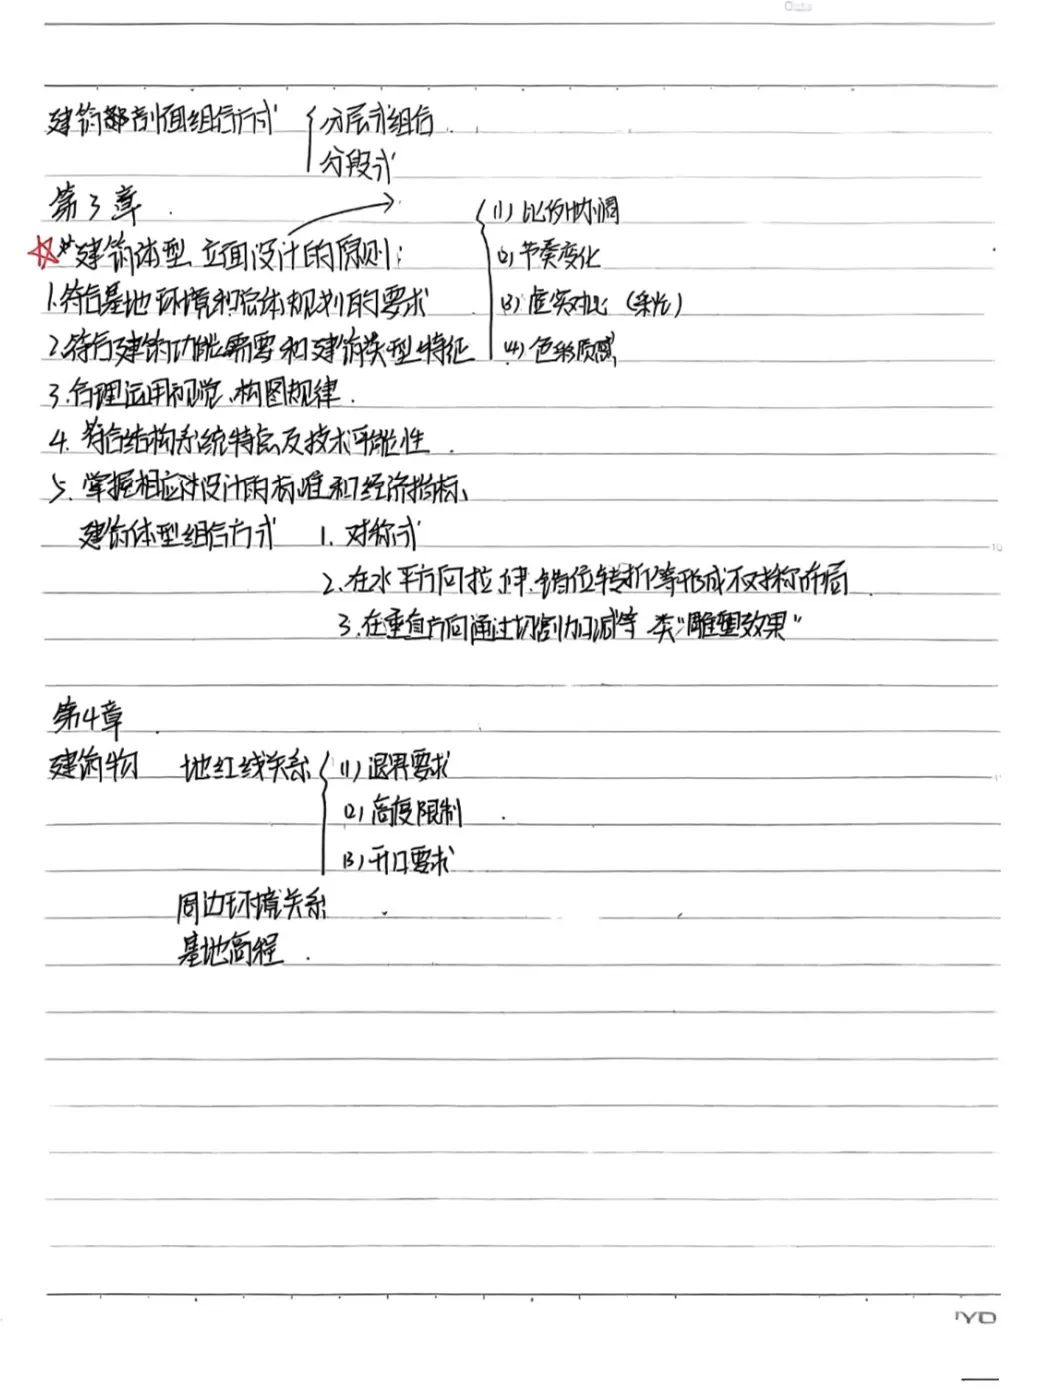 建筑剖面组合方式 { 分层式组合
分段式
第3章
建筑体型、立面设计的原则:
(1) 比例协调
(2) 节奏变化
(3) 虚实对比 (采光)
(4) 色彩质感
1.符合基地环境和总体规划的要求
2.符合建筑功能需要和建筑类型特征
3.合理运用视觉、构图规律.
4.符合结构系统特点及技术可能性.
5.掌握相应设计的标准和经济指标、
建筑体型组合方式 1. 对称式
2.在水平方向拉伸.错位转折等形成不对称布局
3.在垂直方向通过切割加减等 类"雕塑效果"
第4章
建筑物 地红线关系 { (1)退界要求
(2)高度限制
(3)开口要求
周边环境关系
基地高程.